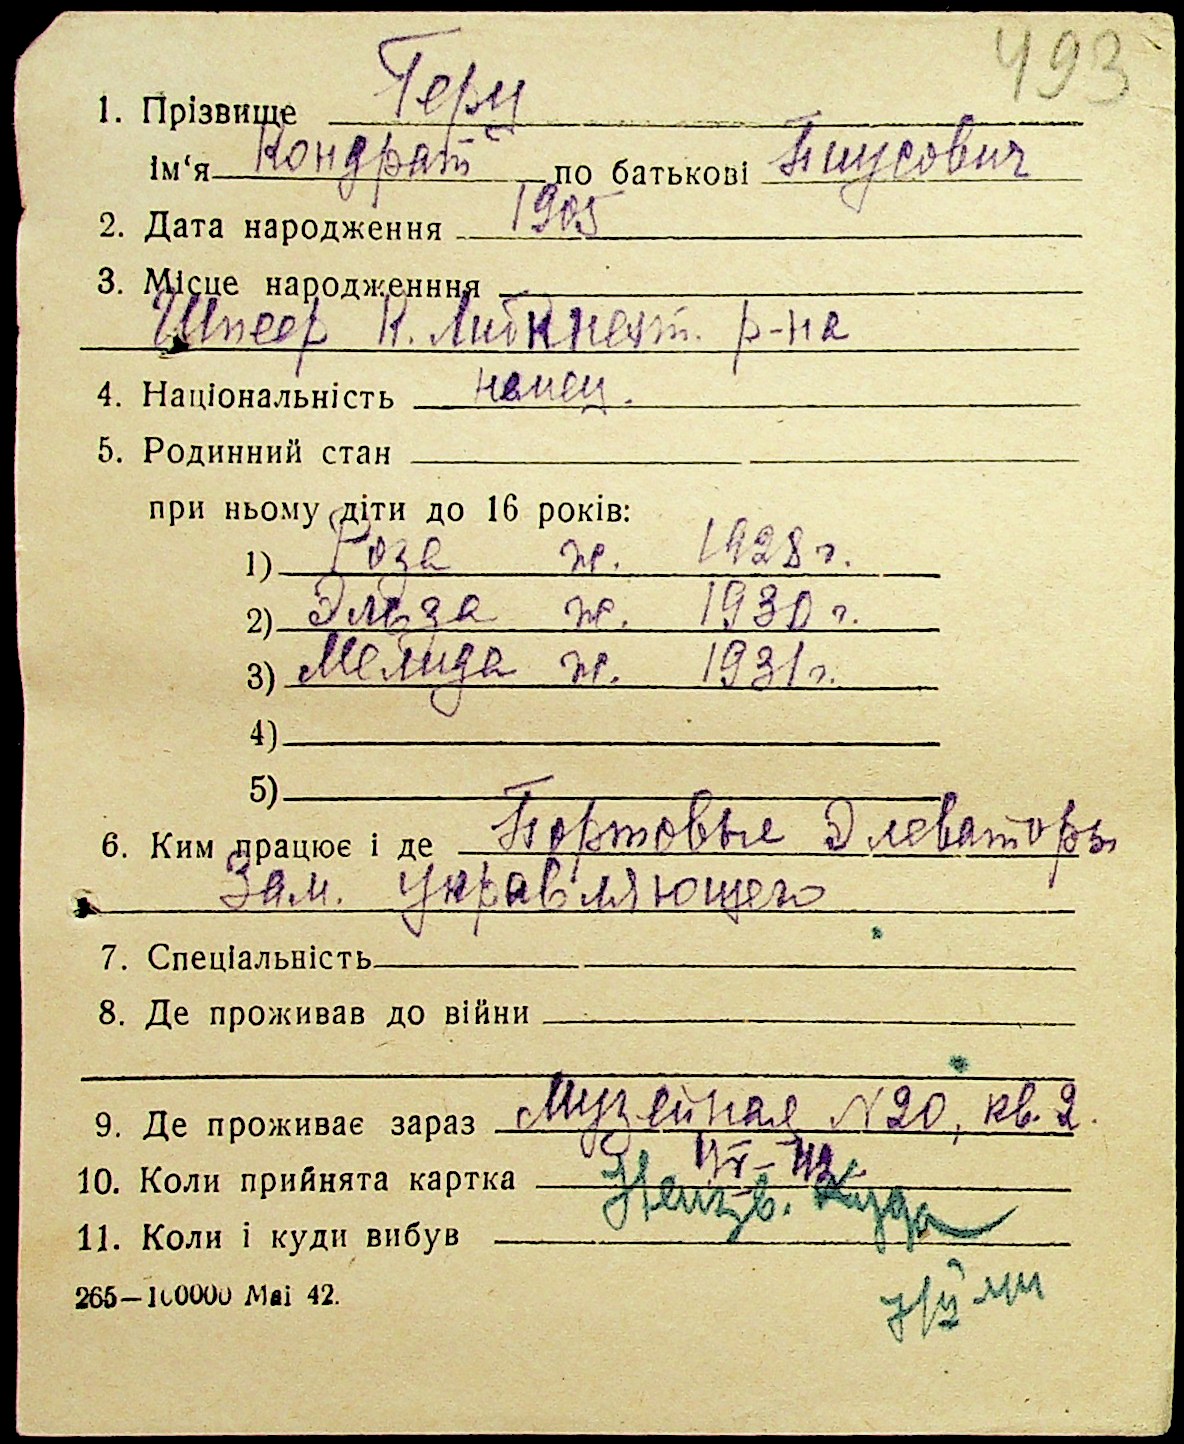 493
1. Прізвище Герц
ім'я Кондрат по батькові Пиусович
2. Дата народження 1905
3. Місце народженння
Шпеер К. Либкнехт. р-на
4. Національність немец.
5. Родинний стан
при ньому діти до 16 років:
1) Роза ж. 1928 г.
2) Эльза ж. 1930 г.
3) Мелида ж. 1931 г.
4)
5)
6. Ким працює і де Портовые Элеваторы
Зам. управляющего
7. Спеціальність
8. Де проживав до війни
9. Де проживає зараз Музейная N20, кв. 2.
10. Коли прийнята картка
11. Коли і куди вибув Неизв. куда
265—100000 Маі 42.